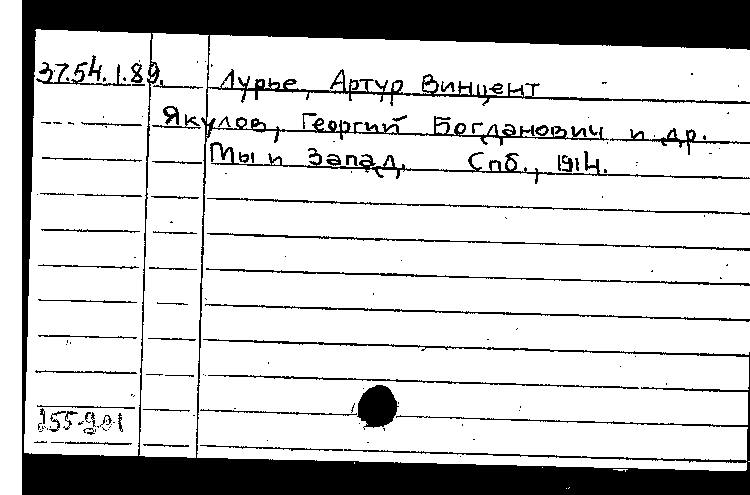 37.54.1.89. Лурье, Артур Винцент
Якулов, Георгий Богданович и др.
Мы и Запад. Спб., 1914.